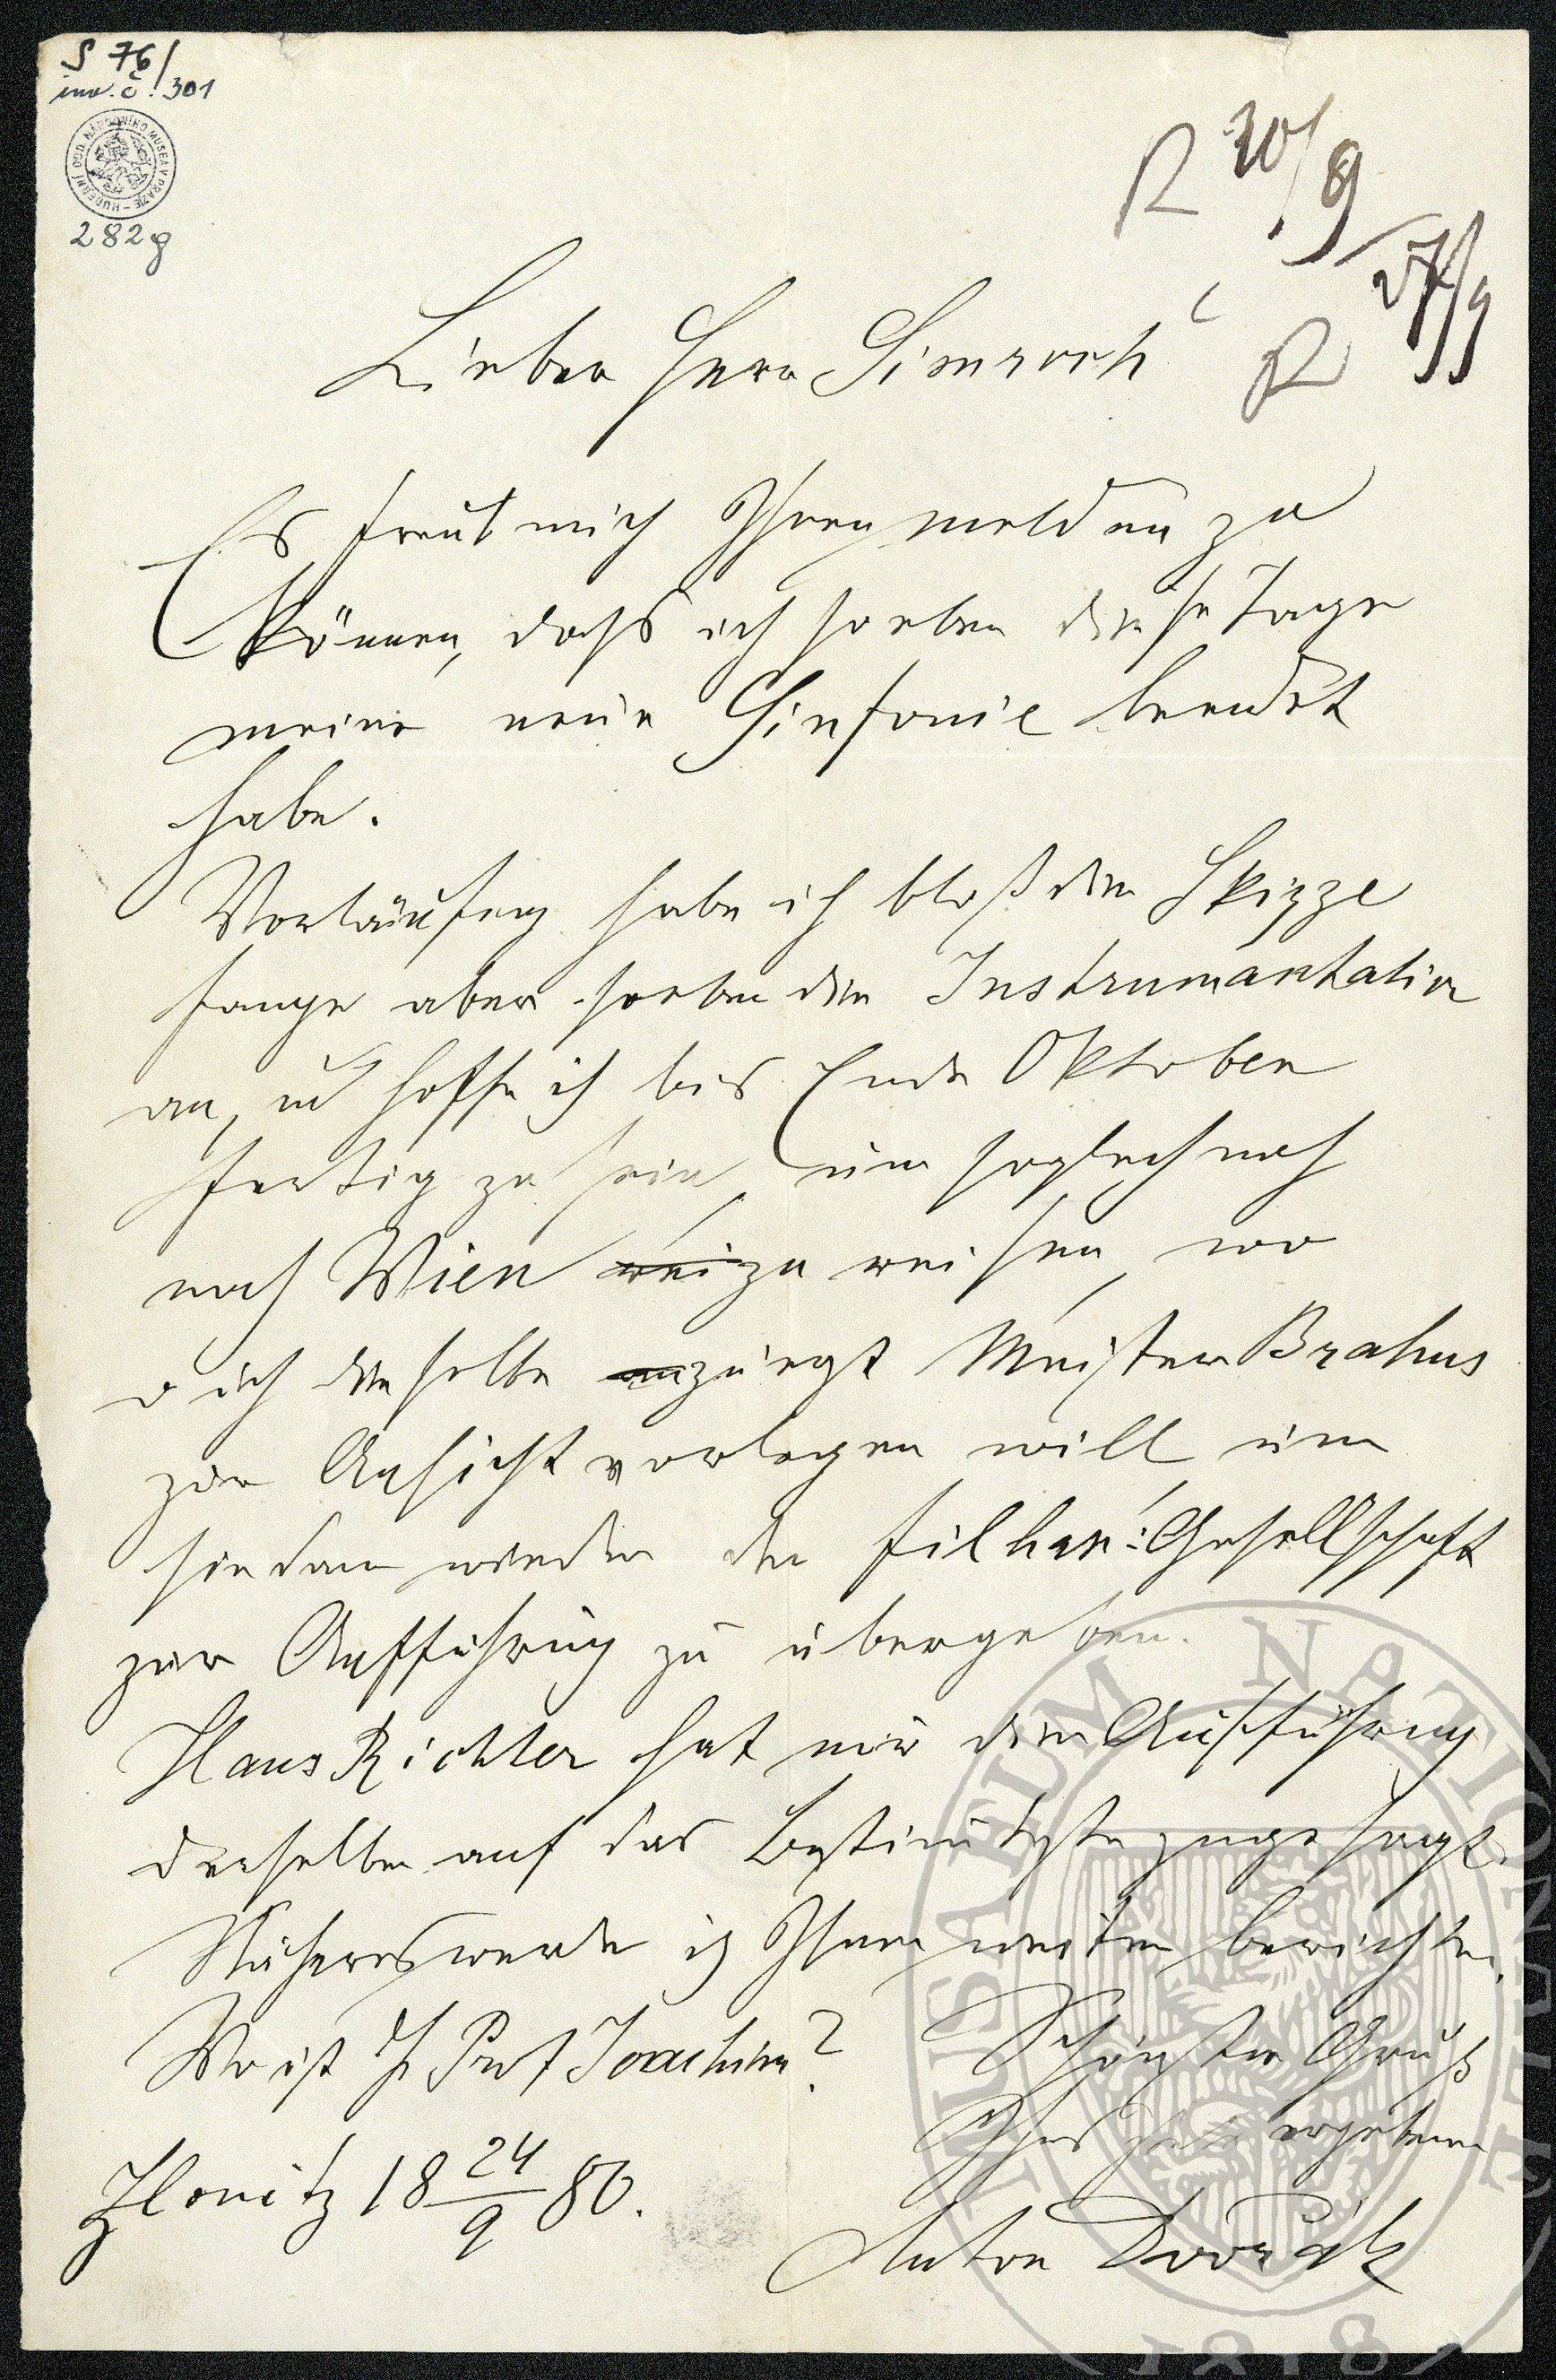 S 76/
inv. č. 301
HUDEBNÍ ODD. NÁRODNÍHO MUSEA V PRAZE
282g
R 20/9
27/9
R
Lieber Herr Simrock
Es freut mich Ihnen melden zu
können, dass ich soeben diese Tage
meine neue Sinfonie beendet
habe.
Vorläufig habe ich bloß die Skizze
fange aber soeben die Instrumentation
an, und hoffe ich bis Ende Oktober
fertig zu sein, um sogleich nach
nach Wien zu reisen, wo
ich dieselbe zuerst Meister Brahms
zur Ansicht vorlegen will um
sie dann wieder der filhar: Gesellschaft
zur Aufführung zu übergeben.
Hans Richter hat mir die Aufführung
derselben auf das Bestimmteste zugesagt.
Näheres werde ich Ihnen weiter berichten.
Wo ist H Prof Joachim? Schönsten Gruß
Ihr ergebener
Zlonitz 18 24/9 80.
Anton Dvořák
MUSAEUM NATIONALE
1818